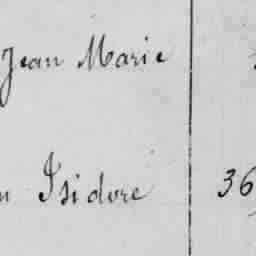 Jean Marie
Isidore 36